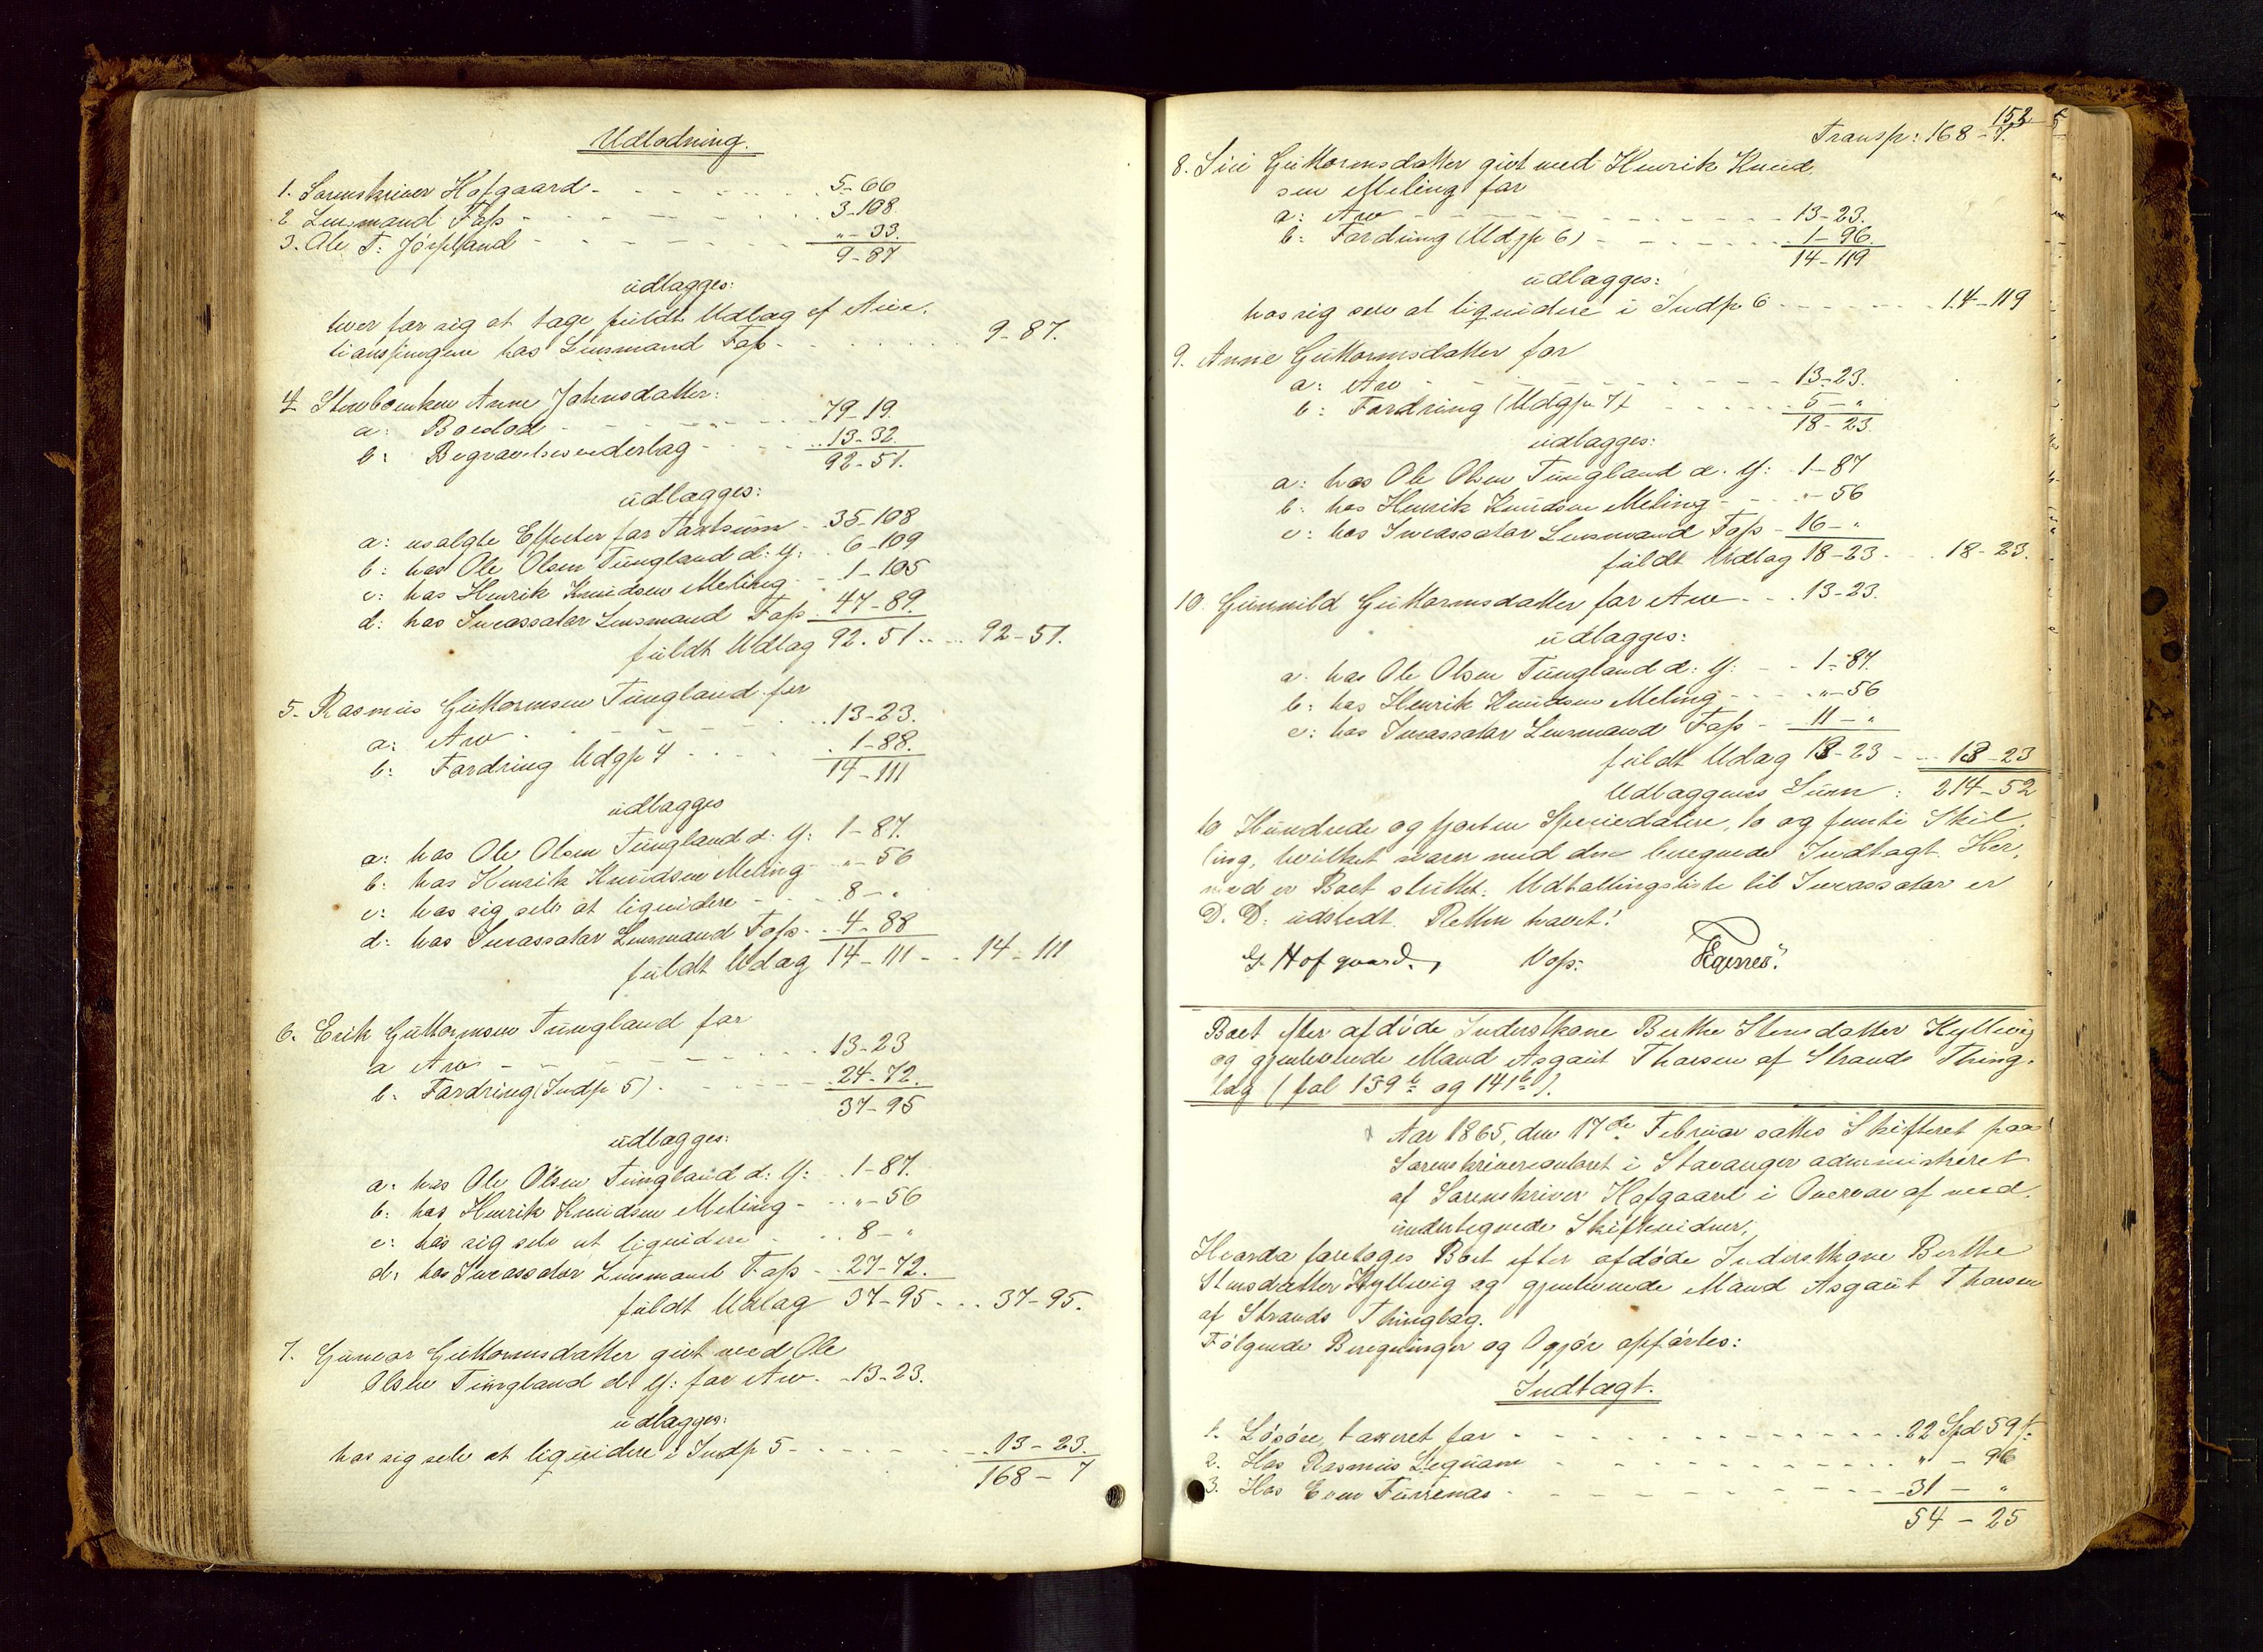 Udlodning.
1. Sorenskriver Hofgaard - 5-66
2 Lensmand Foss - 3-108
3. Ole T. Jösseland - "-33.
9-87
udlægges:
hver for sig at tage fuldt Udlæg af Auc.
tionspengene hos Lensmand Foss - 9-87.
4 Stervboenken Anne Johnsdatter:
a: Boeslod - 79-19.
b: Begravelsesvederlag - 13-32.
92-51.
udlægges:
a: usolgte Effecter for Taxtsum - 35-108
b: hos Ole Olsen Tungland d: y: 6-109
c: hos Henrik Knudsen Meling - 1-105
d: hos Incassator Lensmand Foss 47-89.
fuldt Udlæg 92-51 - 92-51.
5. Rasmus Guttormsen Tungland for
a: Arv - 13-23.
b: Fordring Udgp 4 - 1-88.
14-111
udlægges
a: hos Ole Olsen Tungland d: y: 1-87.
b: hos Henrik Knudsen Meling - "-56
c: hos sig selv at liquidere - 8-"
d: hos Incassator Lensmand Foss - 4-88
fuldt Udæg 14-111 - 14-111
6. Erik Guttormsen Tungland for
a Arv - 13-23
b: Fordring (Indp 5) - 24-72.
37-95
udlægges:
a: hos Ole Olsen Tungland d: y: 1-87.
b: hos Henrik Knudsen Meling - "-56
c: hos sig selv at liquidere - 8-"
d: hos Incassator Lensmand Foss - 27-72.
fuldt Udlæg 37-95 - 37-95.
7. Gunvor Guttormsdatter givt med Ole
Olsen Tungland d: y: for Arv - 13-23.
udlægges:
hos sig selv at liquidere i Indp 5 - 13-23.
168-7
152
Transp: 168-7.
8. Siri Guttormsdatter givt med Henrik Knud.
sen Meling for
a: Arv - 13-23.
b: Fordring (Udgp 6) - 1-96.
14-119
udlægges:
hos sig selv at liquidere i Indp. 6 - 14-119
9. Anne Guttormsdatter for
a: Arv - 13-23.
b: Fordring (Udgp 7) - 5-"
18-23.
udlægges:
a: hos Ole Olsen Tungland d. y: 1-87
b: hos Henrik Knudsen Meling - "-56
c: hos Incassator Lensmand Foss - 16-"
fuldt Udlæg 18-23 - 18-23.
10. Gunnild Guttormsdatter for Arv - 13-23.
udlægges:
a: hos Ole Olsen Tungland d: y: - 1-87.
b: hos Henrik Knudsen Meling - "-56
c: hos Incassator Lensmand Foss - 11-"
fuldt Udæg 13-23 - 13-23
Udlæggenes Sum: 214-52
to Hundrede og fjorten Speciedalere, to og femti Skil.
ling, hvilket svarer med den beregnede Indtægt. Her.
med er Boet sluttet. Udtællingsliste til Incassator er
D. D. udstedt. Retten hævet!
G. Hofgaard. Voss: Egenes.
Boet efter afdöde Inderstkone Berthe Stensdatter Kyllevig
og gjenlevende Mand Asgaut Thorsen af Strands Thing.
lag (fol 139b og 141b).
Aar 1865, den 17de Februar sattes Skifteret paa
Sorenskrivercontoret i Stavanger administreret
af Sorenskriver Hofgaard i Overvær af med
undertegnede Skiftevidner,
Hvorda foretoges Boet efter afdöde Inderstkone Berthe
Stensdatter Kyllevig og gjenlevende Mand Asgaut Thorsen
af Strands Thinglag.
Følgende Beregninger og Opgjör opførtes:
Indtægt.
1. Lösöre, taxeret for - 22 Spd 59 s.
2. Hos Rasmus - " - 96
3. Hos Even - 31 - "
54 - 25